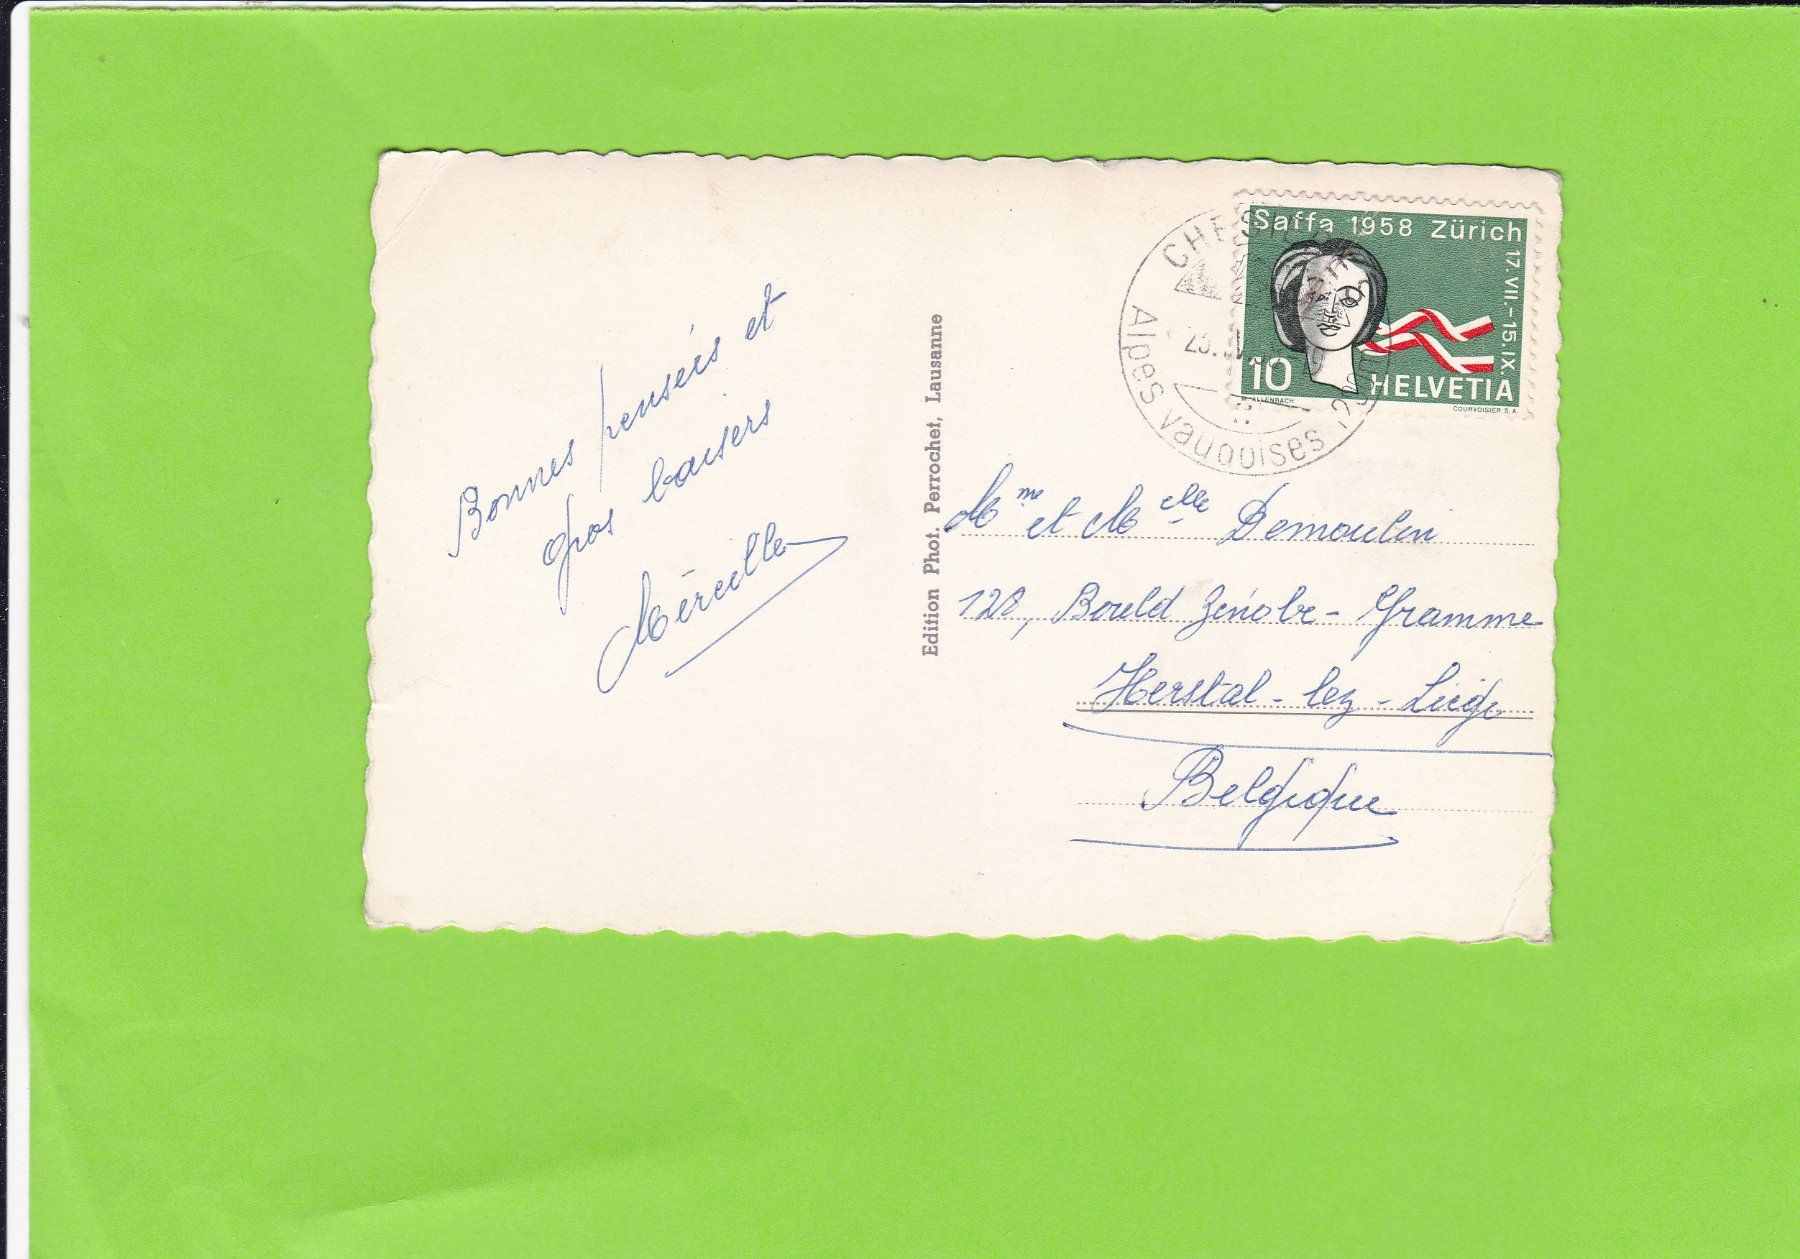 Bonnes pensées et
gros baisers
Méreille
Edition Phot. Perrochet, Lausanne
Saffa 1958 Zürich
17.VII.-15.IX.
10
HELVETIA
COURVOISIER S.A.
Alpes vaudoises
Mme et Melle Demoulin
128, Bould Zénobe-Gramme
Herstal-lez-Liège
Belgique